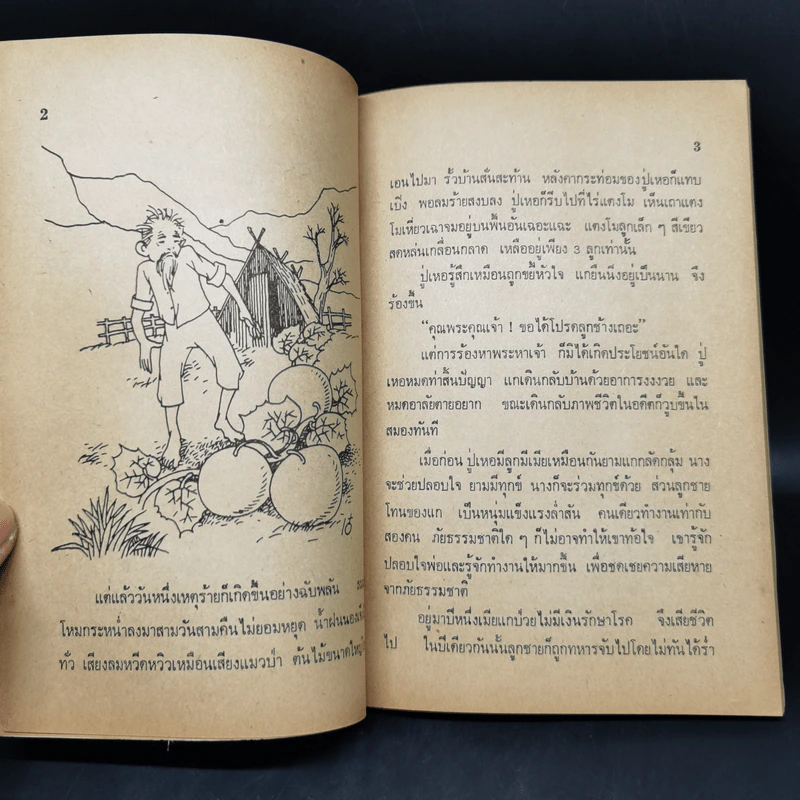 2
แต่แล้ววันหนึ่งเหตุร้ายก็เกิดขึ้นอย่างฉับพลัน
โหมกระหน่ำลงมาสามวันสามคืนไม่ยอมหยุด น้ำฝนนองเ
ทั่ว เสียงลมหวีดหวิวเหมือนเสียงแมวป่า ต้นไม้ขนาดใหญ่
3
เอนไปมา รั้วบ้านสั่นสะท้าน หลังคากระท่อมของปู่เหอก็แทบ
เปิง พอลมร้ายสงบลง ปู่เหอก็รีบไปที่ไร่แตงโม เห็นเถาแตง
โมเหี่ยวเฉาจมอยู่บนพื้นอันเฉอะแฉะ แตงโมลูกเล็ก ๆ สีเขียว
สดหล่นเกลื่อนกลาด เหลืออยู่เพียง 3 ลูกเท่านั้น
ปู่เหอรู้สึกเหมือนถูกขยี้หัวใจ แกยืนนิ่งอยู่เป็นนาน จึง
ร้องขึ้น
“คุณพระคุณเจ้า ! ขอได้โปรดลูกช้างเถอะ”
แต่การร้องหาพระหาเจ้า ก็มิได้เกิดประโยชน์อันใด ปู่
เหอหมดท่าสิ้นปัญญา แกเดินกลับบ้านด้วยอาการงงงวย และ
หมดอาลัยตายอยาก ขณะเดินกลับภาพชีวิตในอดีตก็วูบขึ้นใน
สมองทันที
เมื่อก่อน ปู่เหอมีลูกมีเมียเหมือนกันยามแกกลัดกลุ้ม นาง
จะช่วยปลอบใจ ยามมีทุกข์ นางก็จะร่วมทุกข์ด้วย ส่วนลูกชาย
โทนของแก เป็นหนุ่มแข็งแรงล่ำสัน คนเดียวทำงานเท่ากับ
สองคน ภัยธรรมชาติใด ๆ ก็ไม่อาจทำให้เขาท้อใจ เขารู้จัก
ปลอบใจพ่อและรู้จักทำงานให้มากขึ้น เพื่อชดเชยความเสียหาย
จากภัยธรรมชาติ
อยู่มาปีหนึ่งเมียแกป่วยไม่มีเงินรักษาโรค จึงเสียชีวิต
ไป ในปีเดียวกันนั้นลูกชายก็ถูกทหารจับไปโดยไม่ทันได้ร่ำ